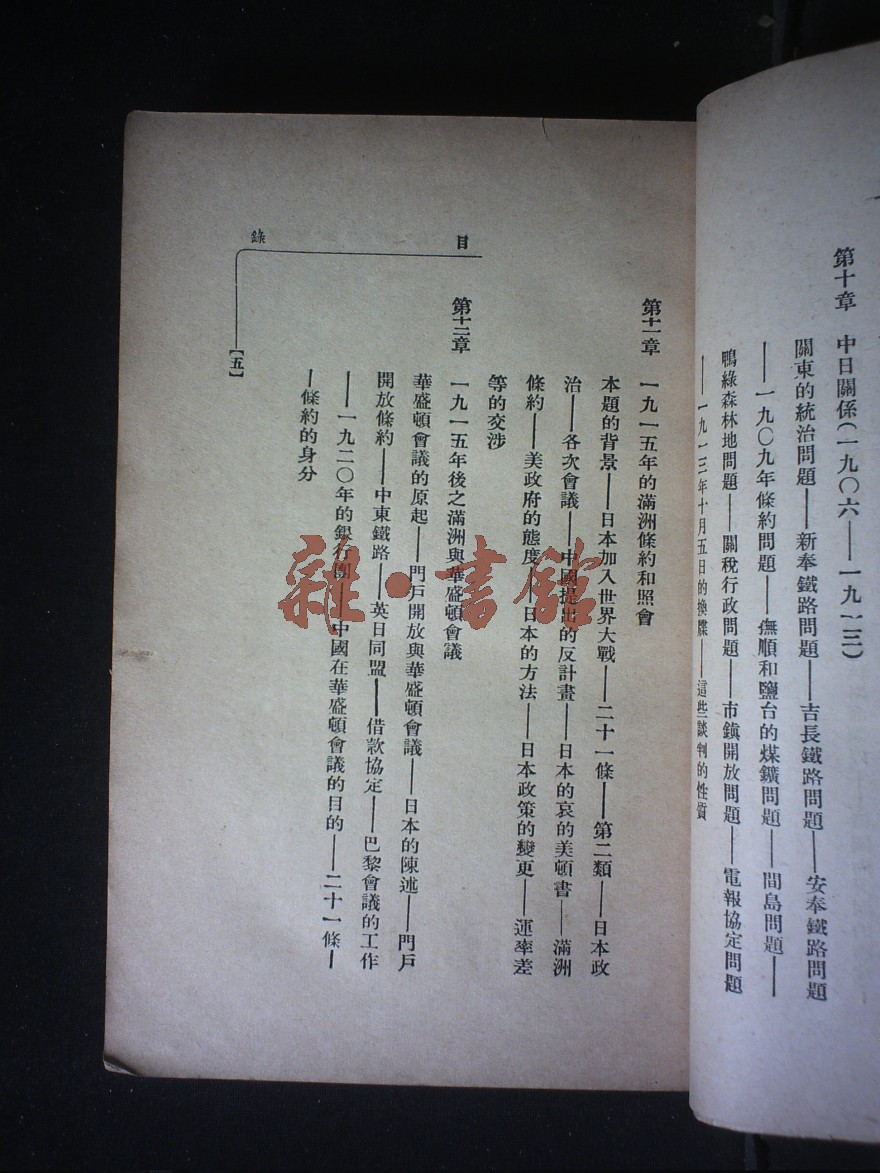 第十章 中日關係(一九〇六——一九一三)
關東的統治問題——新奉鐵路問題——吉長鐵路問題——安奉鐵路問題
——一九〇九年條約問題——撫順和鹽台的煤鑛問題——間島問題——
鴨綠森林地問題——關稅行政問題——市鎮開放問題——電報協定問題
——一九一三年十月五日的換牒——這些談判的性質
目錄
第十一章 一九一五年的滿洲條約和照會
本題的背景——日本加入世界大戰——二十一條——第二類——日本政
治——各次會議——中國提出的反計畫——日本的哀的美頓書——滿洲
條約——美政府的態度——日本的方法——日本政策的變更——運率差
等的交涉
第十二章 一九一五年後之滿洲與華盛頓會議
華盛頓會議的原起——門戶開放與華盛頓會議——日本的陳述——門戶
開放條約——中東鐵路——英日同盟——借款協定——巴黎會議的工作
——一九二〇年的銀行團——中國在華盛頓會議的目的——二十一條—
—條約的身分
【五】
雜·書館